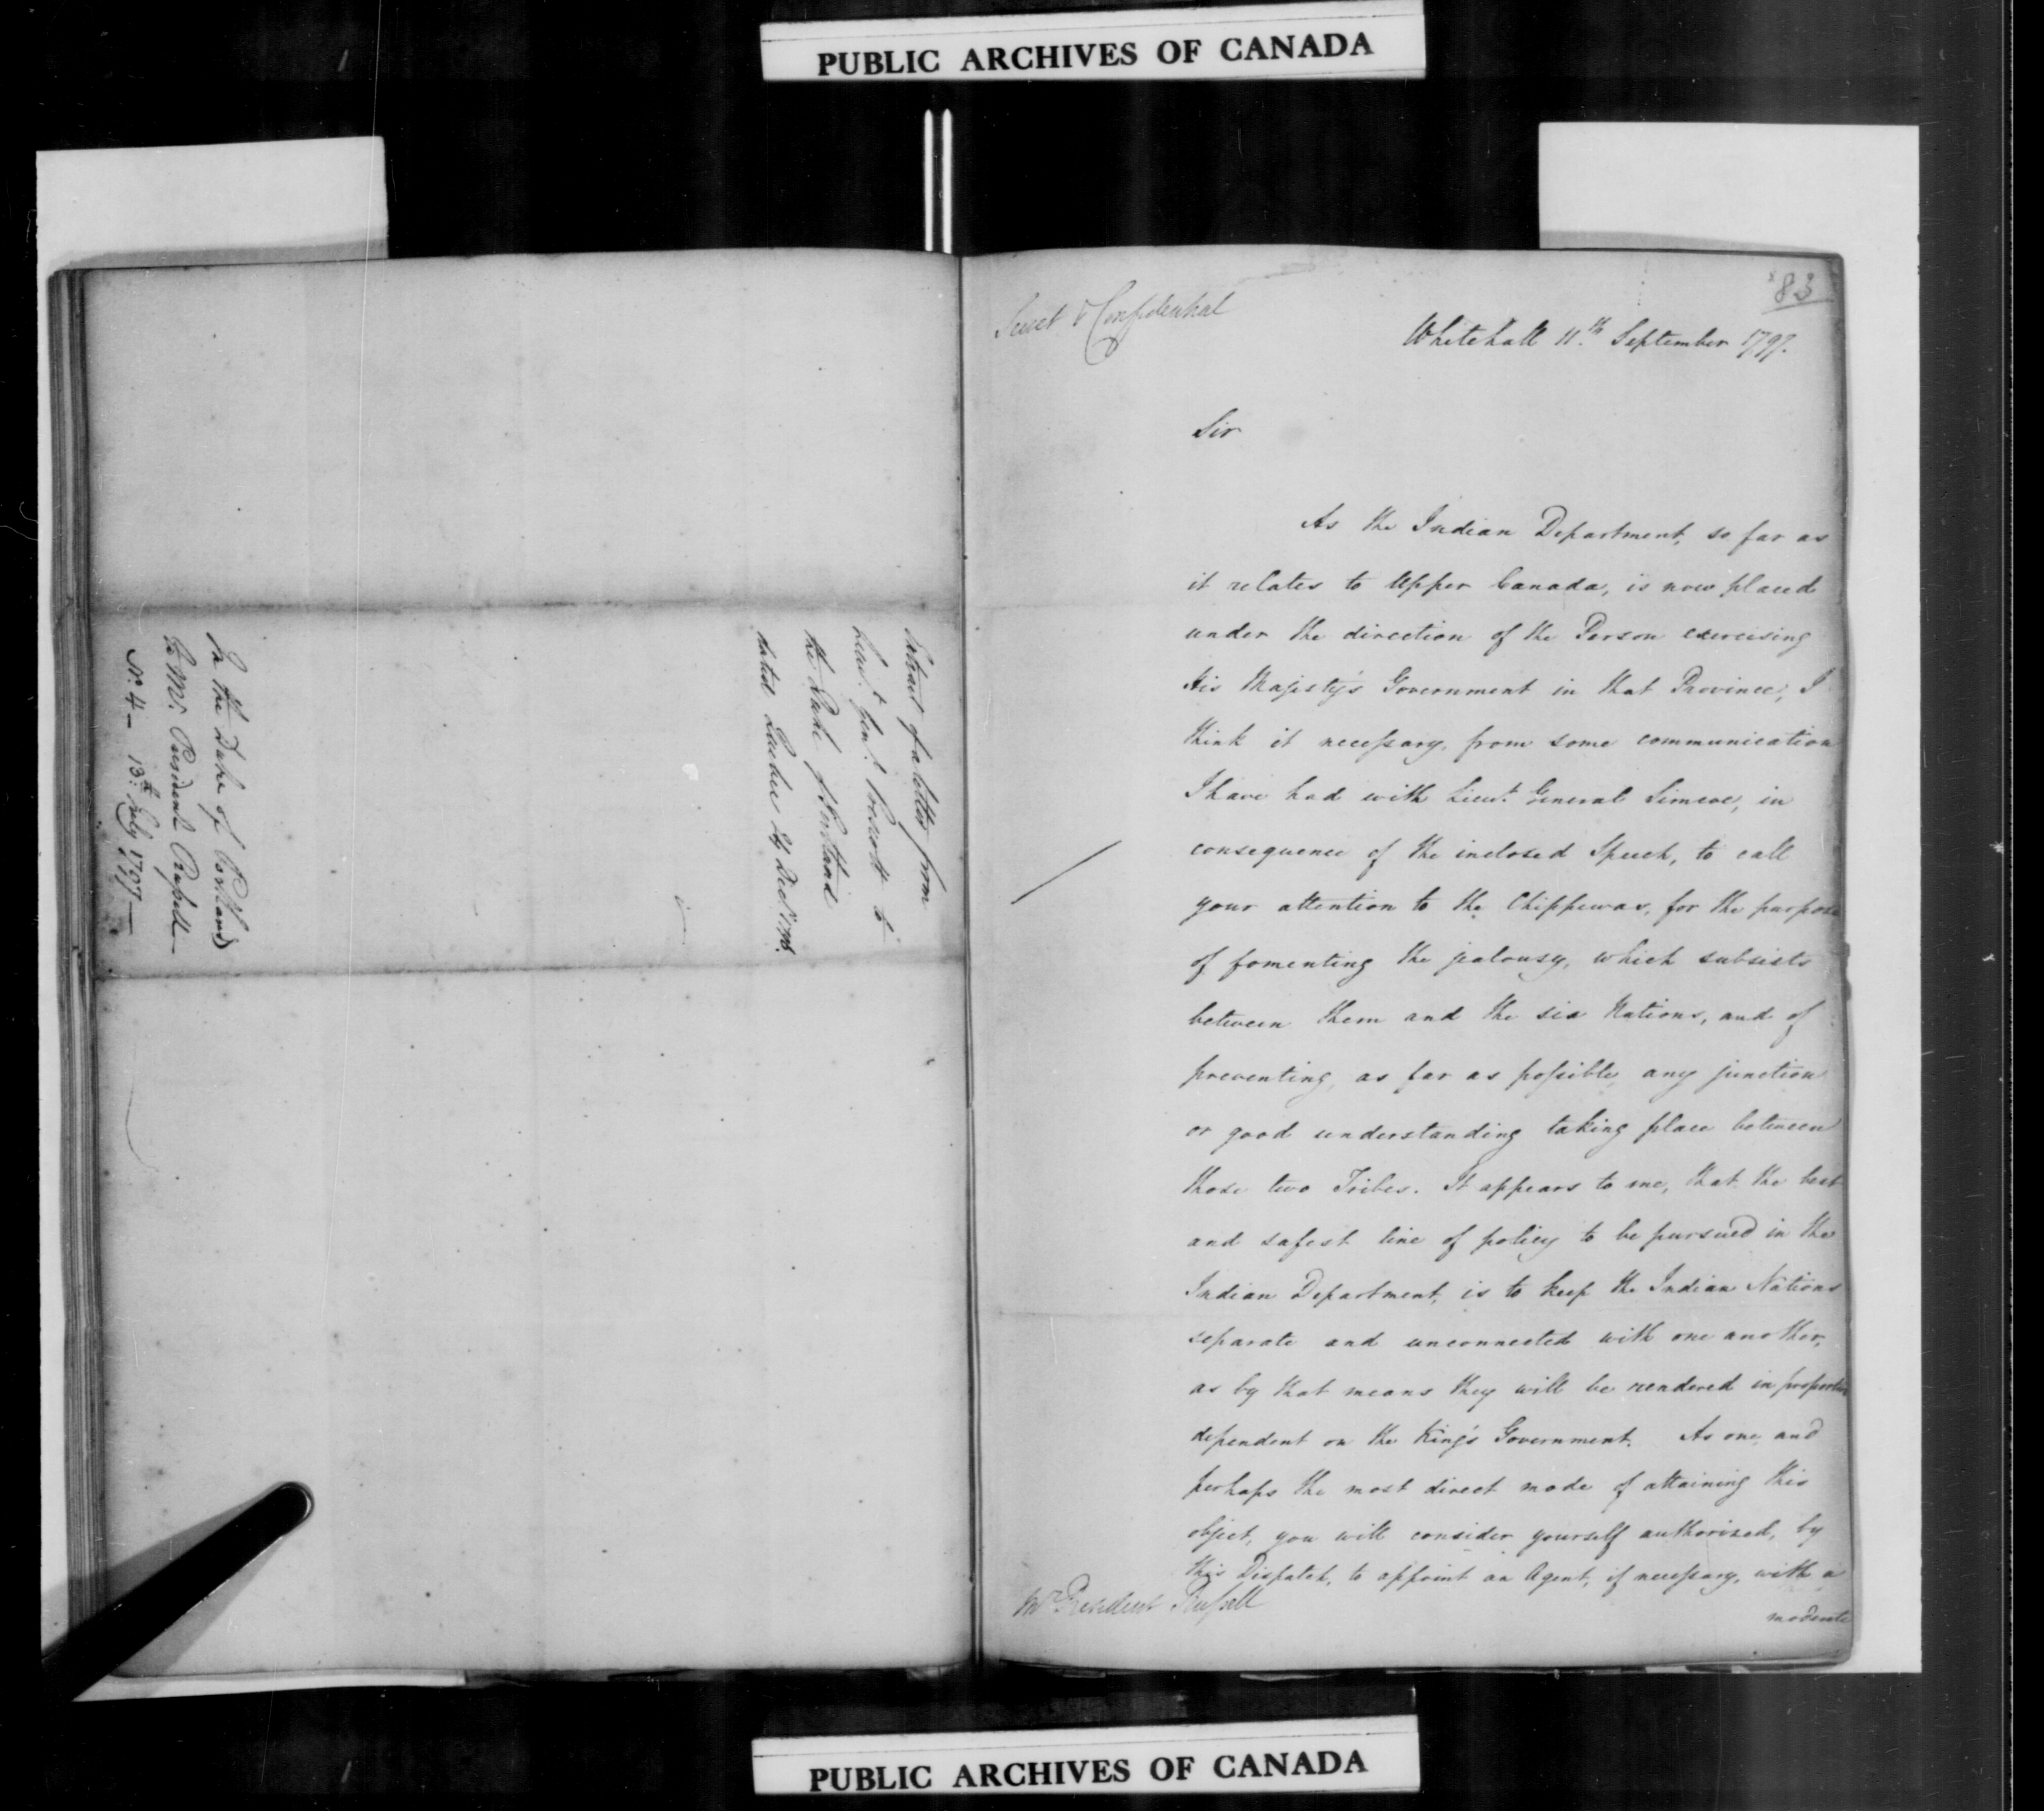 PUBLIC ARCHIVES OF CANADA
Extract of a letter from
Lieut. Genl. Prescott to
the Duke of Portland
dated Quebec 24 Decr. 1796.
In the Duke of Portland's
to Mr. President Russell
No. 4 – 13th July 1797 –
83
Secret & Confidential
Whitehall 11th September 1797.
Sir
As the Indian Department, so far as
it relates to Upper Canada, is now placed
under the direction of the Person exercising
His Majesty's Government in that Province, I
think it necessary, from some communication
I have had with Lieut. General Simcoe, in
consequence of the inclosed Speech, to call
your attention to the Chippewas, for the purpose
of fomenting the jealousy, which subsists
between them and the six Nations, and of
preventing, as far as possible, any junction
or good understanding taking place between
those two Tribes. It appears to me, that the best
and safest line of policy to be pursued in the
Indian Department, is to keep the Indian Nations
separate and unconnected with one another,
as by that means they will be rendered in proportion
dependent on the King's Government. As one, and
perhaps the most direct mode of attaining this
object, you will consider yourself authorized, by
this Dispatch, to appoint an Agent, if necessary, with a
moderate
Mr. President Russell
PUBLIC ARCHIVES OF CANADA